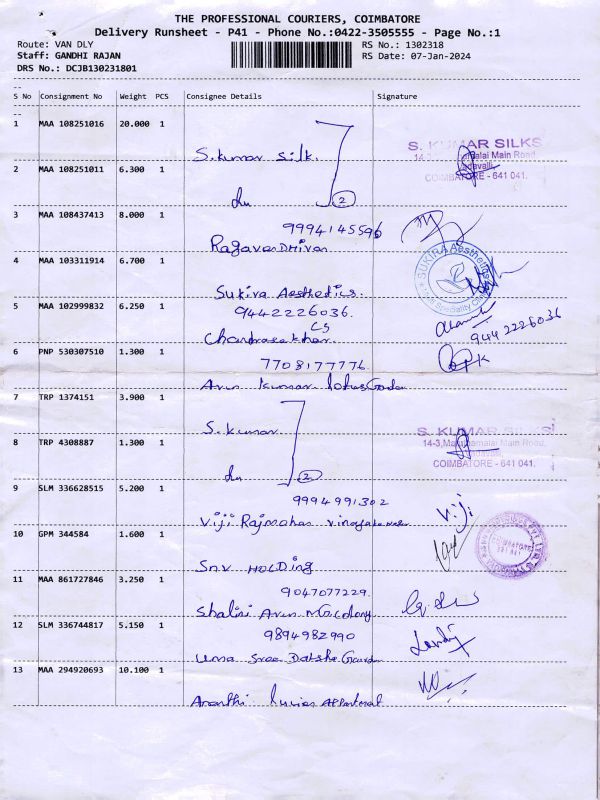 THE PROFESSIONAL COURIERS, COIMBATORE
Delivery Runsheet - P41 - Phone No.:0422-3505555 - Page No.:1
Route: VAN DLY RS No.: 1302318
Staff: GANDHI RAJAN RS Date: 07-Jan-2024
DRS No.: DCJB130231801
S No Consignment No Weight PCS Consignee Details Signature
1 MAA 108251016 20.000 1
S. KUMAR SILKS
Main Road,
COIMBATORE - 641 041.
S. kumar silk.
2 MAA 108251011 6.300 1
2
3 MAA 108437413 8.000 1
9994145596
RagavanDHivan
4 MAA 103311914 6.700 1
SUKIRA Aesthetics
Sukira Aesthetics.
5 MAA 102999832 6.250 1
9442226036.
9442226036
Chandrasekhar.
6 PNP 530307510 1.300 1
7708177776
Arun kumar lotus
7 TRP 1374151 3.900 1
S. KUMAR SILKS
S. kumar
8 TRP 4308887 1.300 1
14-3, Main Road,
COIMBATORE - 641 041.
2
9 SLM 336628515 5.200 1
9994991302
Viji
Viji Rajmohan
10 GPM 344584 1.600 1
COIMBATORE
641 041
Snv HOLDing
11 MAA 861727846 3.250 1
9047077229.
Shalini Arun
12 SLM 336744817 5.150 1
9894982990
uma Sree Daksha
13 MAA 294920693 10.100 1
Ananthi